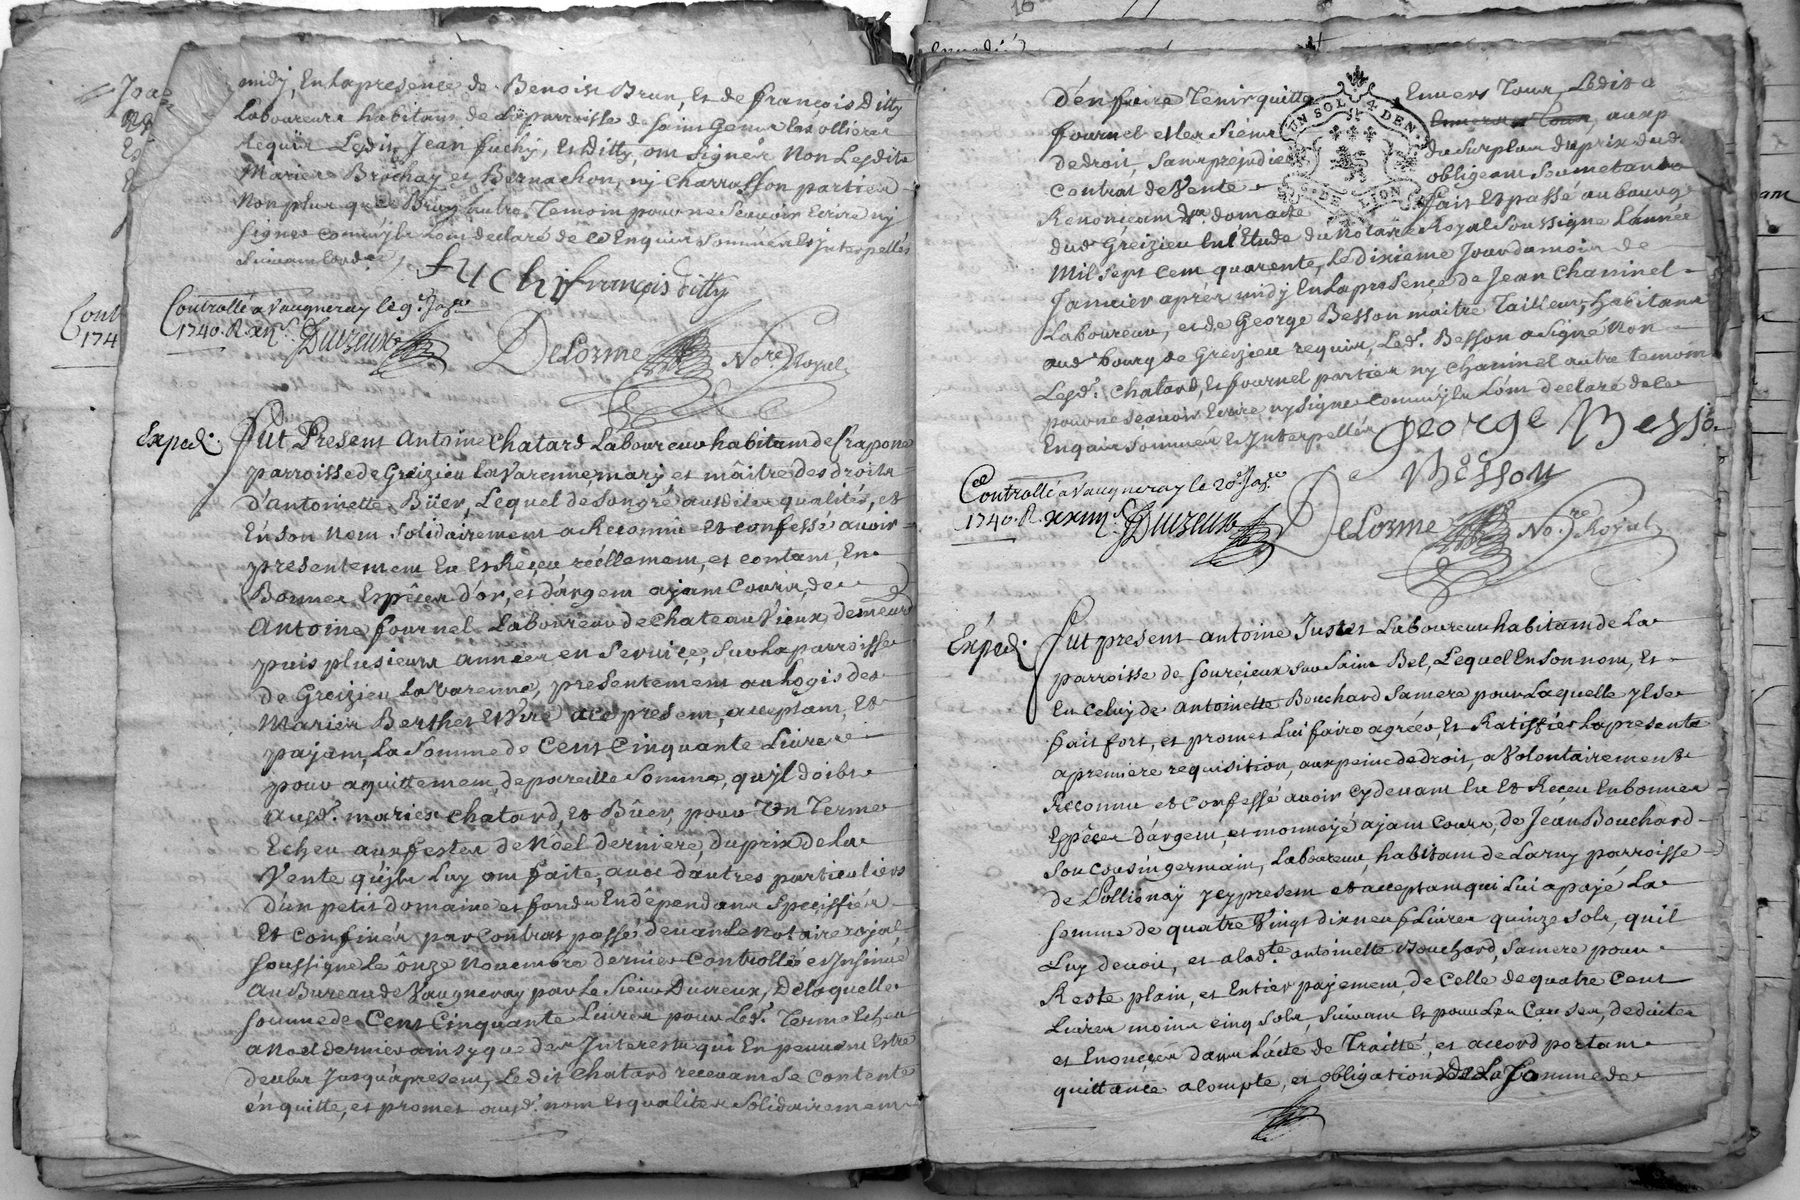 midy, En la presence de Benoist Brun, Et de françois Ditty
Laboureurs habitans de la parroisse de Saint Genis les ollieres
Requis Lesdits Jean fuchy, Et Ditty, ont signés Non Lesdits
Mariers Brochay et Bernachon, ny Charrasson parties
Non plus que Brun autre Temoin pour ne sçavoir Ecrire ny
signer comm'yls L'ont declaré de ce Enquis Sommés Et Interpellés
Suivant L'ord.e
fuchi françois ditty
Controllé a Vaugneray le 9.e Ja.er
1740. R. xij s. Duizeux
DeLorme No.re Royal
Cont
174
Exped.
Fut Present Antoine Chatard Laboureur habitant de Crapone
parroisse de Greizieu La Varenne mary et maître des droits
d'antoinette Büer, Lequel de Son gré ausdites qualités, et
En Son Nom Solidairement a Reconnu et confessé avoir
presentement Eu et Reçeu réellement, et contant, En
Bonnes Espêces d'or, et d'argent ajant Cours, de
Antoine fournel Laboureur de Chateau Vieux, demeurt
puis plusieurs années en Service, Sur la parroisse
de Greizieu La Varenne, presentement au Logis des
Mariés Berthet Et Viré a ce present, acceptant, Et
pajant, La Somme de Cent Cinquante Livres
pour aquittement, de pareille Somme, qu'jl doibt
ausd. mariés Chatard, Et Bûer, pour Un Terme
Echeu aux festes de Nöel derniere, du prix de la
Vente qu'jls Luy ont faite, avec d'autres particuliers
d'un petit domaine et fonds En dépendans Speciffiés
Et Confinés par Contrat passé devant le Notaire rojal
Soussigné le ônze Novembre dernier Controllé et Insinué
au Bureau de Vaugneray par le Sieur Duizeux, De laquelle
somme de Cent Cinquante Livres pour Led. Terme Echeu
a Noel dernier ainsy que des Interests qui En peuvent Estre
deubs Jusqu'apresent, Ledit Chatard recevant Se Contente
en quitte, et promet ausd. nom Et qualités Solidairement
d'en faire Tenir quitte Envers Tous, Ledit
fournel et les Siens Envers Tous, aux p
de droit, Sans préjudice du Surplus du prix dud.
Contrat de Vente obligeant Soumetant
Renonceant Fait Et passé au bourg
dud. Greizieu En l'Etude du Notaire Royal Soussigné L'année
Mil Sept Cent quarente, Le dixieme Jour du mois de
Janvier après midy En la presence de Jean Chaninel
Laboureur, et de George Besson maitre Tailleur, habitans
aud. bourg de Greizieu requis, Led. Besson a Signé Non
Lesd. Chatard, Et fournel parties ny Chaninel autre temoin
pour ne sçavoir Ecrire ny signer comm'yls L'ont declaré de ce
Enquis Sommés Et Interpellés
UN SOL 4 DEN
G. DE LION
George Besson
Besson
Controllé a Vaugneray le 20.e Ja.er
1740. R. xxiiij s. Duizeux
DeLorme No.re Royal
Exped.
Fut present antoine Juttet Laboureur habitant de La
parroisse de Sourcieux Sur Saint Bel, Lequel En Son nom, Et
En Celuy de Antoinette Bouchard Sa mere pour Laquelle yl se
fait fort, et promet Lui faire agréer, Et Ratiffier La presente
a premiere requisition, aux peine de droit, a Volontairement
Reconnu et Confessé avoir Cy devant Eu Et Reçeu En bonnes
Espêces d'argent, et monnoyé ajant Cours, de Jéan Bouchard
Son Cousin germain, Laboureur, habitant de Larny parroisse
de Pollionay ycy present et acceptant qui Lui a payé La
Somme de quatre Vingt dixneuf Livres quinze Sols, qu'il
Luy devoit, et a lad.te antoinette Bouchard, Sa mere pour
Reste plain, et Entier pajement, de Celle de quatre Cent
Livres moins cinq Sols, Suivant Et pour Les Causes, deduites
et Enoncées dans L'acte de Traitté, et accord portant
quittance a Compte, et obligation de La Somme de